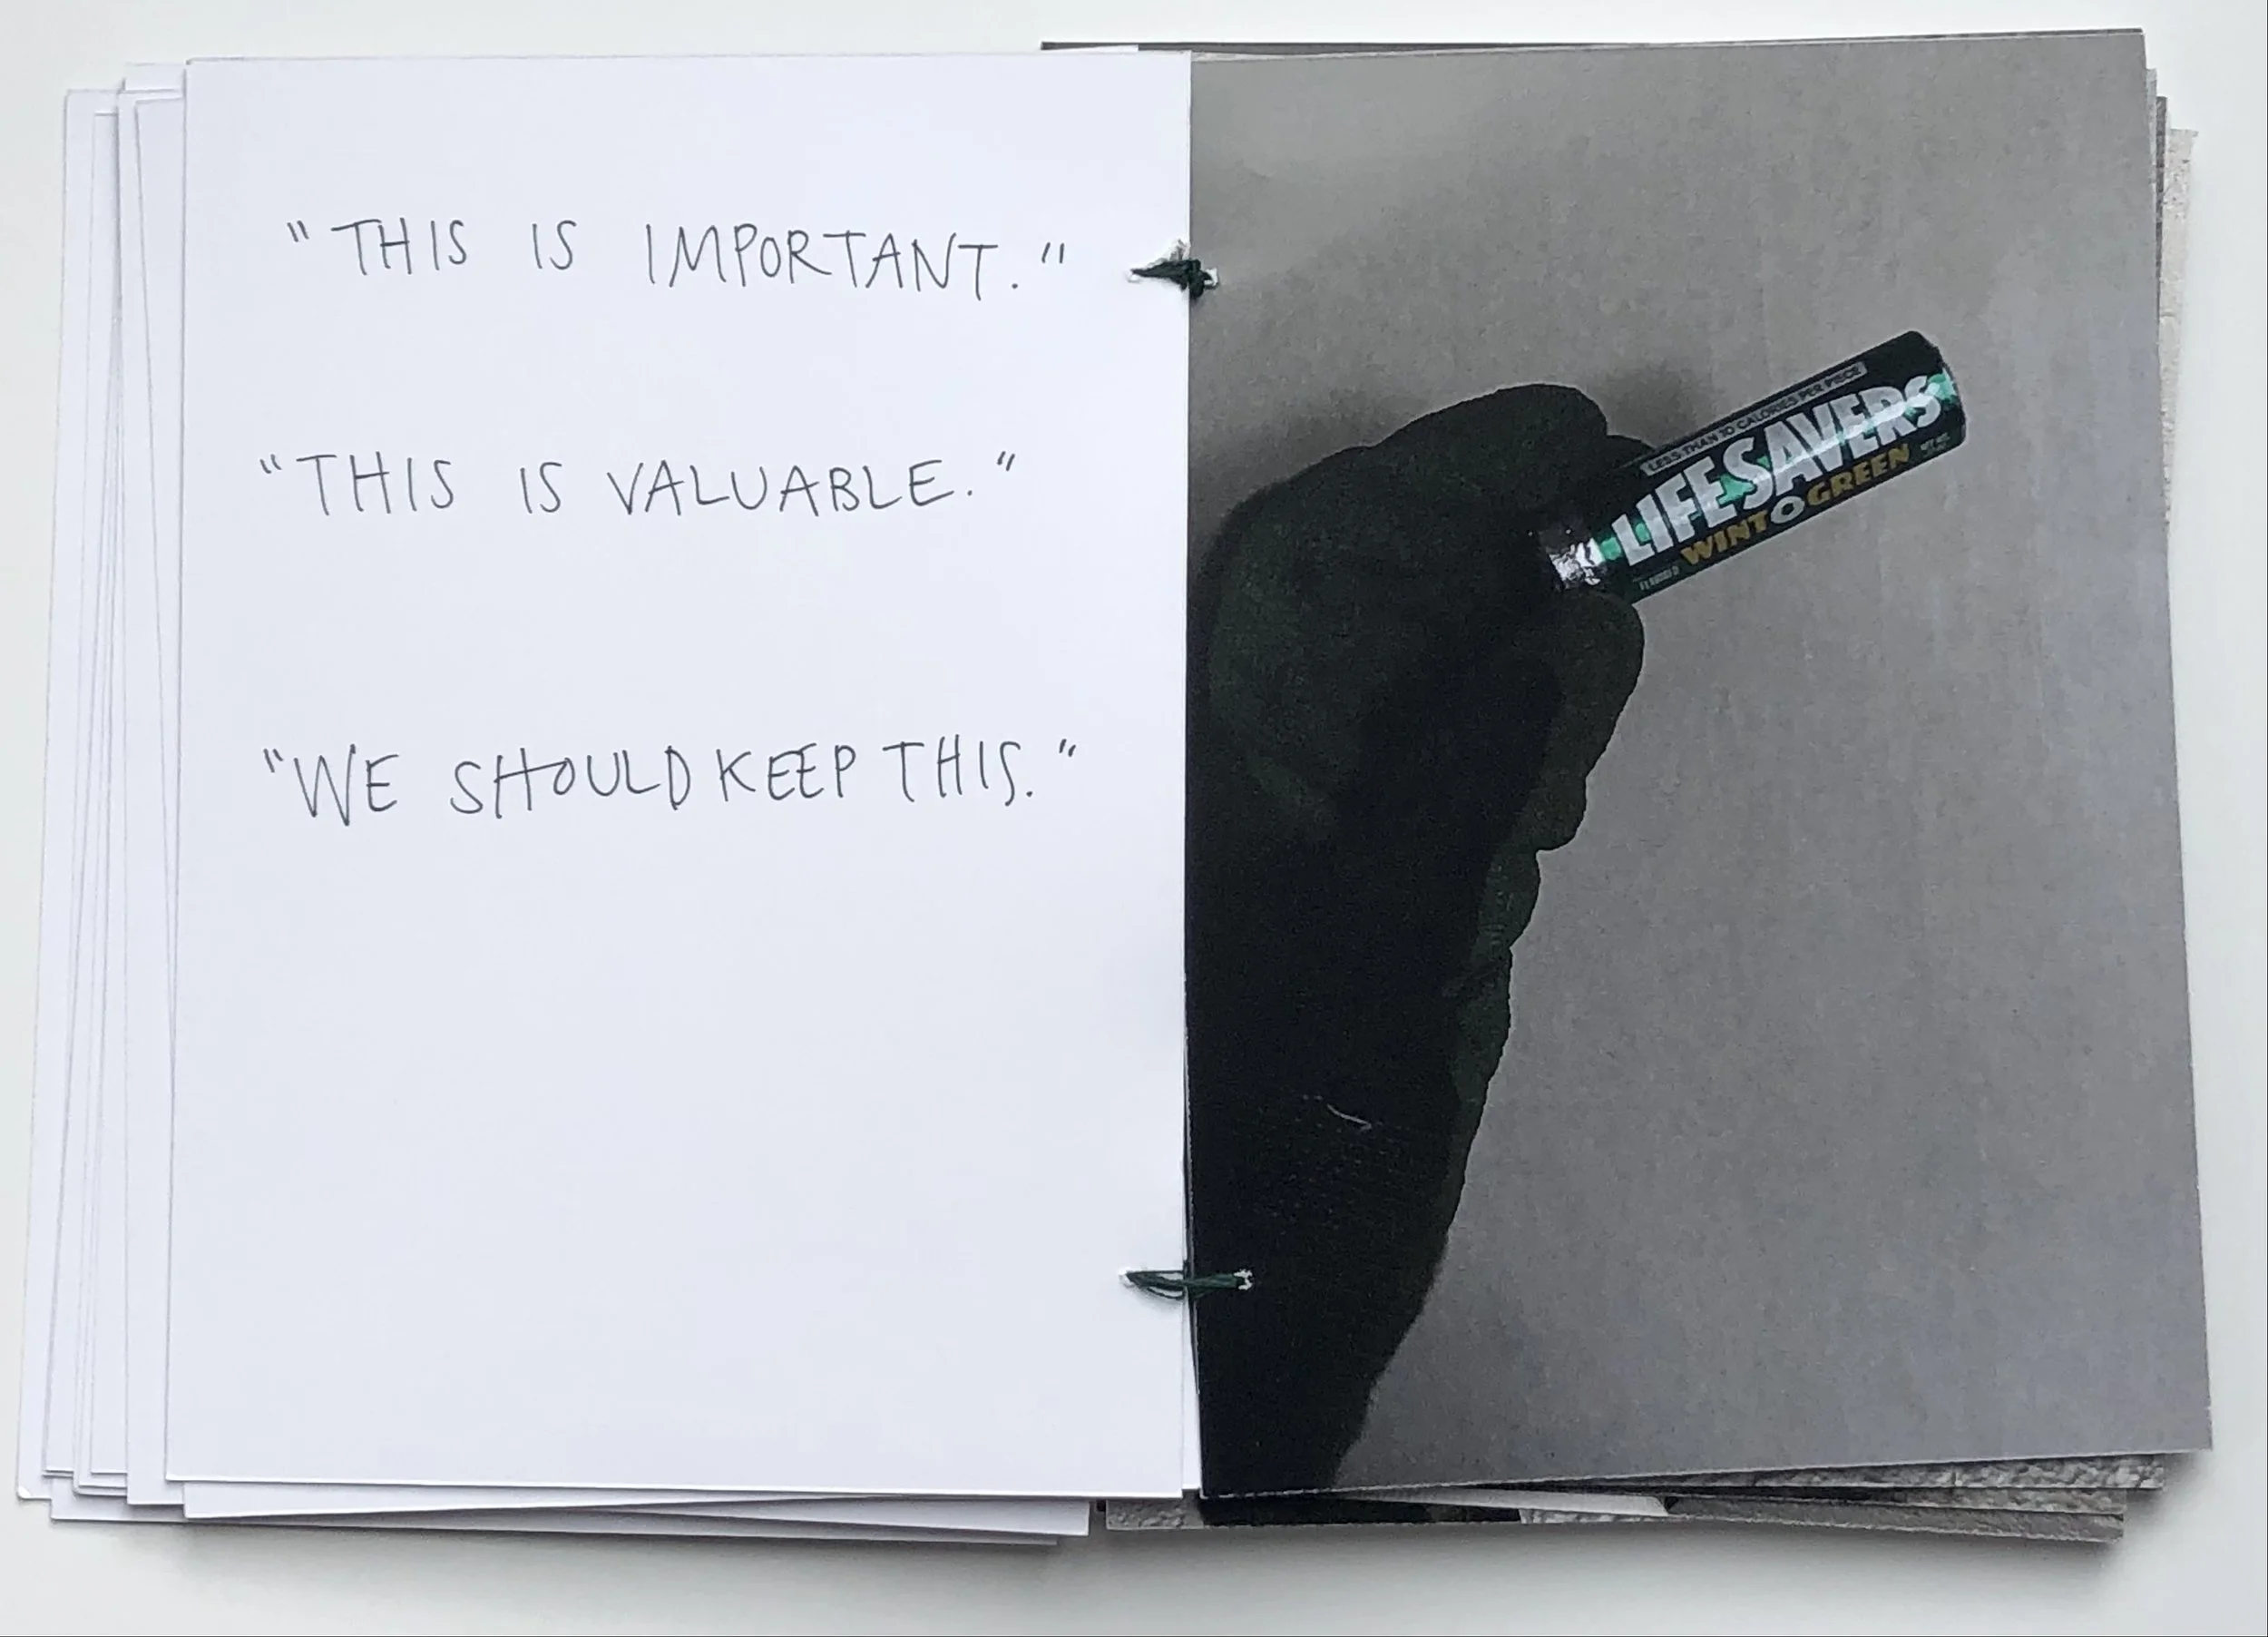 "THIS IS IMPORTANT."
"THIS IS VALUABLE."
"WE SHOULD KEEP THIS."
LESS THAN 10 CALORIES PER PIECE
LIFE SAVERS
WINT O GREEN